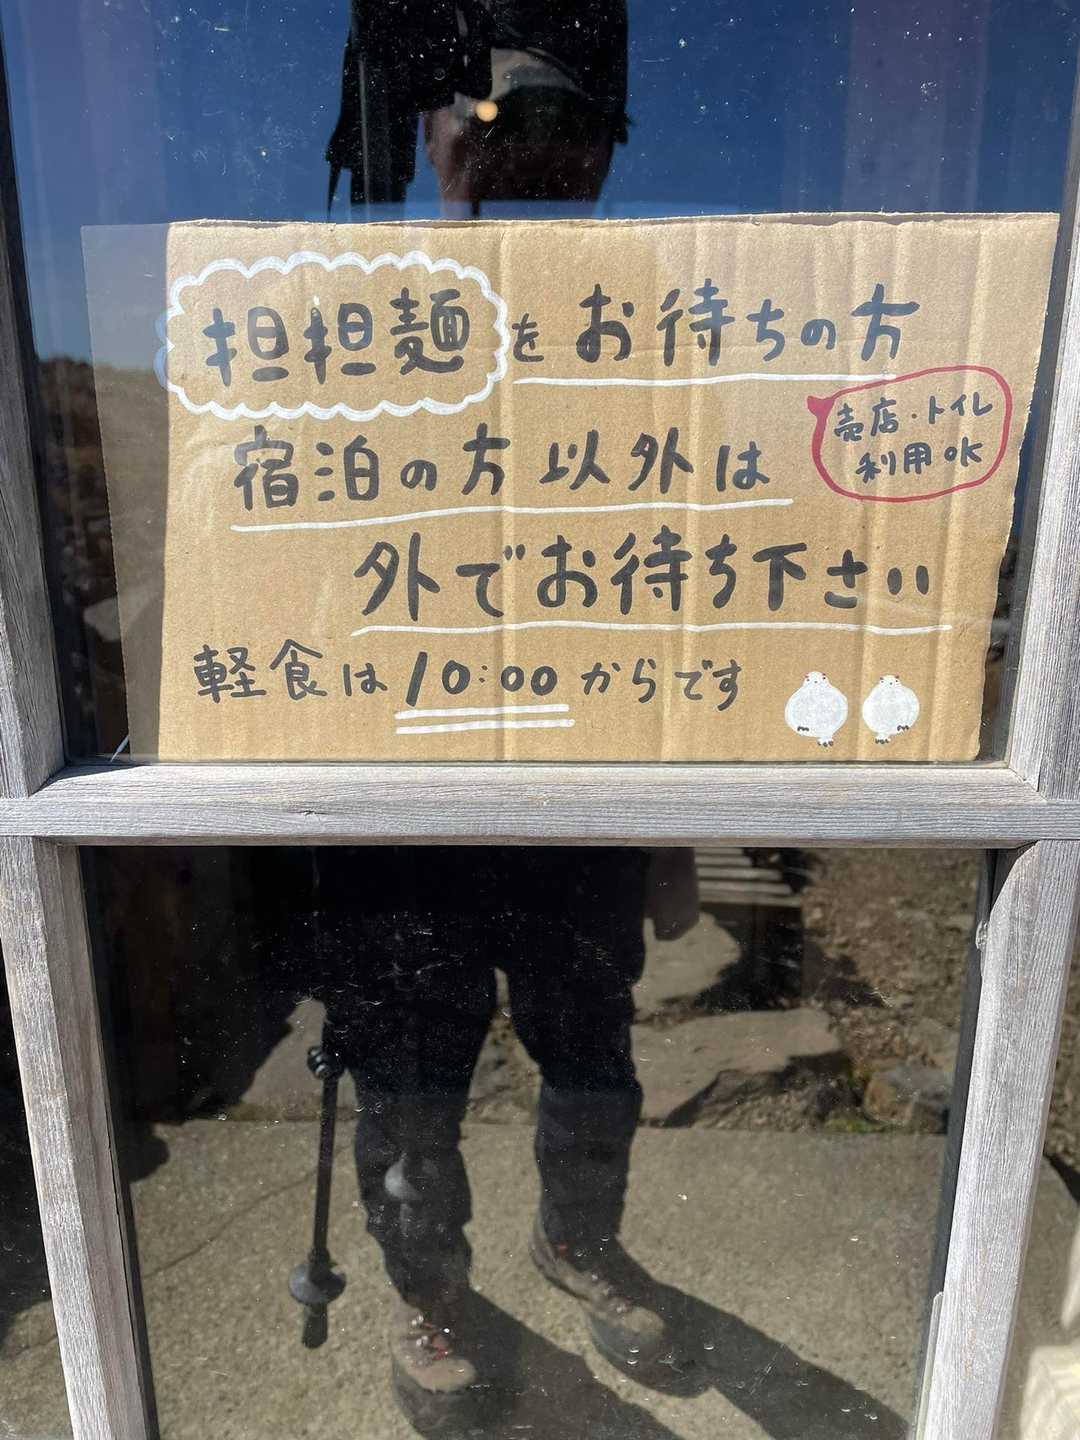 担担麺をお待ちの方
売店・トイレ
利用OK
宿泊の方以外は
外でお待ち下さい
軽食は10:00からです